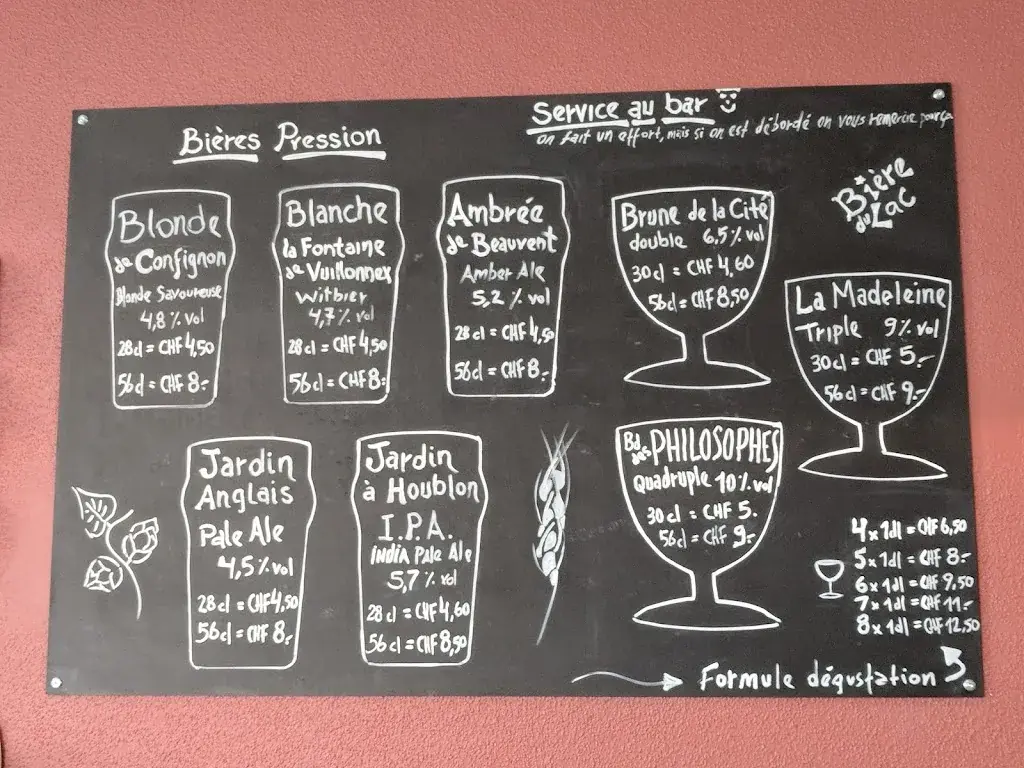 Bières Pression
Service au bar
on fait un effort, mais si on est débordé on vous remercie pour ça
Bière
du Lac
Blonde
de Confignon
Blonde Savoureuse
4,8 % vol
28 cl = CHF 4,50
56 cl = CHF 8.-
Blanche
la Fontaine
de Vuillonnex
Witbier
4,7 % vol
28 cl = CHF 4,50
56 cl = CHF 8.-
Ambrée
de Beauvent
Amber Ale
5,2 % vol
28 cl = CHF 4,50
56 cl = CHF 8.-
Brune de la Cité
double 6,5 % vol
30 cl = CHF 4,60
56 cl = CHF 8,50
La Madeleine
Triple 9 % vol
30 cl = CHF 5.-
56 cl = CHF 9.-
Jardin
Anglais
Pale Ale
4,5 % vol
28 cl = CHF 4,50
56 cl = CHF 8.-
Jardin
à Houblon
I.P.A.
india Pale Ale
5,7 % vol
28 cl = CHF 4,60
56 cl = CHF 8,50
Bd des PHILOSOPHES
Quadruple 10 % vol
30 cl = CHF 5.
56 cl = CHF 9.-
4 x 1dl = CHF 6,50
5 x 1dl = CHF 8.-
6 x 1dl = CHF 9,50
7 x 1dl = CHF 11.-
8 x 1dl = CHF 12,50
Formule dégustation